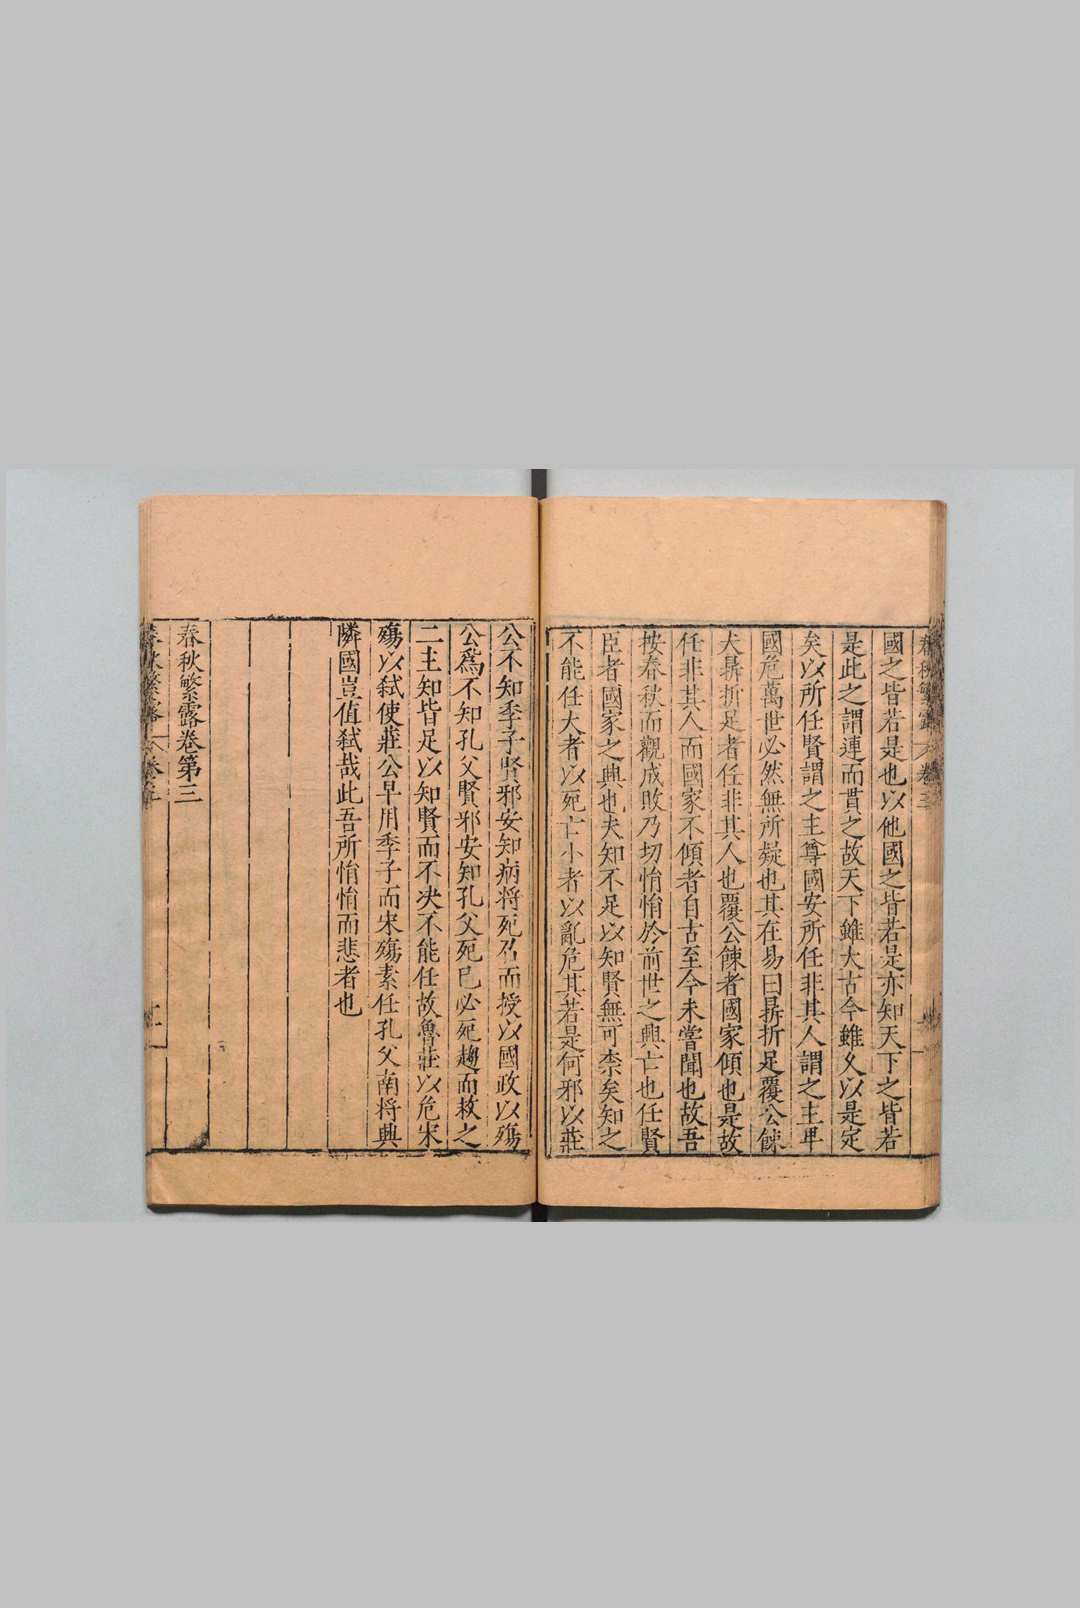 春秋繁露 卷三
國之皆若是也以他國之皆若是亦知天下之皆若
是此之謂連而貫之故天下雖大古今雖久以是定
矣以所任賢謂之主尊國安所任非其人謂之主卑
國危萬世必然無所疑也其在易曰鼎折足覆公餗
夫鼎折足者任非其人也覆公餗者國家傾也是故
任非其人而國家不傾者自古至今未嘗聞也故吾
按春秋而觀成敗乃切悁悁於前世之興亡也任賢
臣者國家之興也夫知不足以知賢無可柰矣知之
不能任大者以死亡小者以亂危其若是何邪以莊
公不知季子賢邪安知病將死召而授以國政以殤
公爲不知孔父賢邪安知孔父死已必死趨而救之
二主知皆足以知賢而不决不能任故魯莊以危宋
殤以弑使莊公早用季子而宋殤素任孔父尚將興
隣國豈值弑哉此吾所悁悁而悲者也
春秋繁露卷第三
春秋繁露 卷三